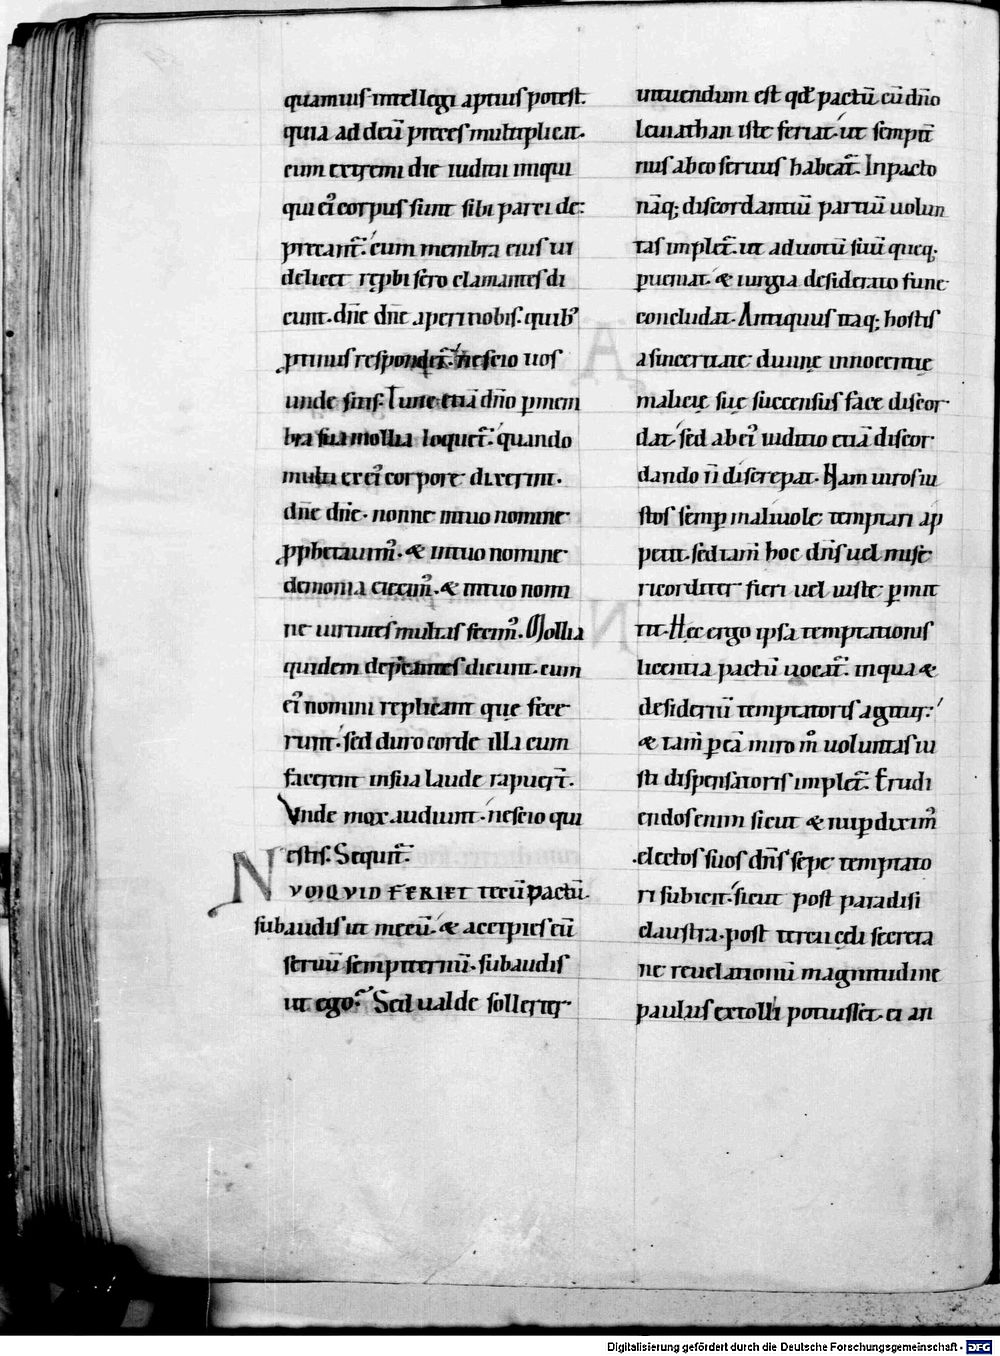 quamuis intellegi aptius potest.
quia ad deū preces multiplicat.
cum extremi die iudicii iniqui
qui ei' corpus sunt sibi parci de:
precant̄. cum membra eius ut
delicet reꝓbi sero clamantes di
cunt. dn̄e dn̄e aperi nobis. quib'
ꝓtinus respondet̄. nescio uos
unde sitis. Tunc etiā dn̄o ꝑ mem
bra sua mollia loquet̄. quando
multi ex ei' corpore dixerint.
dn̄e dn̄e. nonne in tuo nomine
ꝓphetauim'. & in tuo nomine
demonia eiecim'. & in tuo nomi
ne uirtutes multas fecim'. Mollia
quidem dep̄cantes dicunt. cum
ei' nomini replicant que fece
runt. sed duro corde illa cum
facerent in sua laude rapuer̄t.
Vnde mox audiunt. nescio qui
estis. Sequit̄.
NVNQVID FERIET tecū pactū.
subaudis ut mecū. & accipies eū
seruū sempiternū. subaudis
ut ego. Sed ualde sollerter
intuendum est qd̄ pactū cū dn̄o
leuiathan iste feriat. ut sempit̄
nus ab eo seruus habeat̄. In pacto
nāq; discordantiū partiū uolun
tas implet̄. ut ad uotū suū queq;
pueniat. & iurgia desiderato fine
concludat. Antiquus itaq; hostis
a sinceritate diuinę innocentię
malicię suę succensus face discor
dat. sed ab ei' iudicio etiā discor
dando n̄ discrepat. Nam uiros iu
stos semp maliuole temptari ap
petit. sed tam̄ hoc dn̄s uel mise
ricorditer fieri uel iuste ꝑmit
tit. Hęc ergo ipsa temptationis
licentia pactū uocat̄. in qua &
desideriū temptatoris agitur:
& tam̄ ꝑ eā miro m̊ uoluntas iu
sti dispensatoris implet̄. Erudi
endos enim sicut & nuꝑ diximꝰ
electos suos dn̄s sepe temptato
ri subicit. sicut post paradisi
claustra. post tercii cęli secreta
ne reuelationū magnitudine
paulus extolli potuisset. ei an